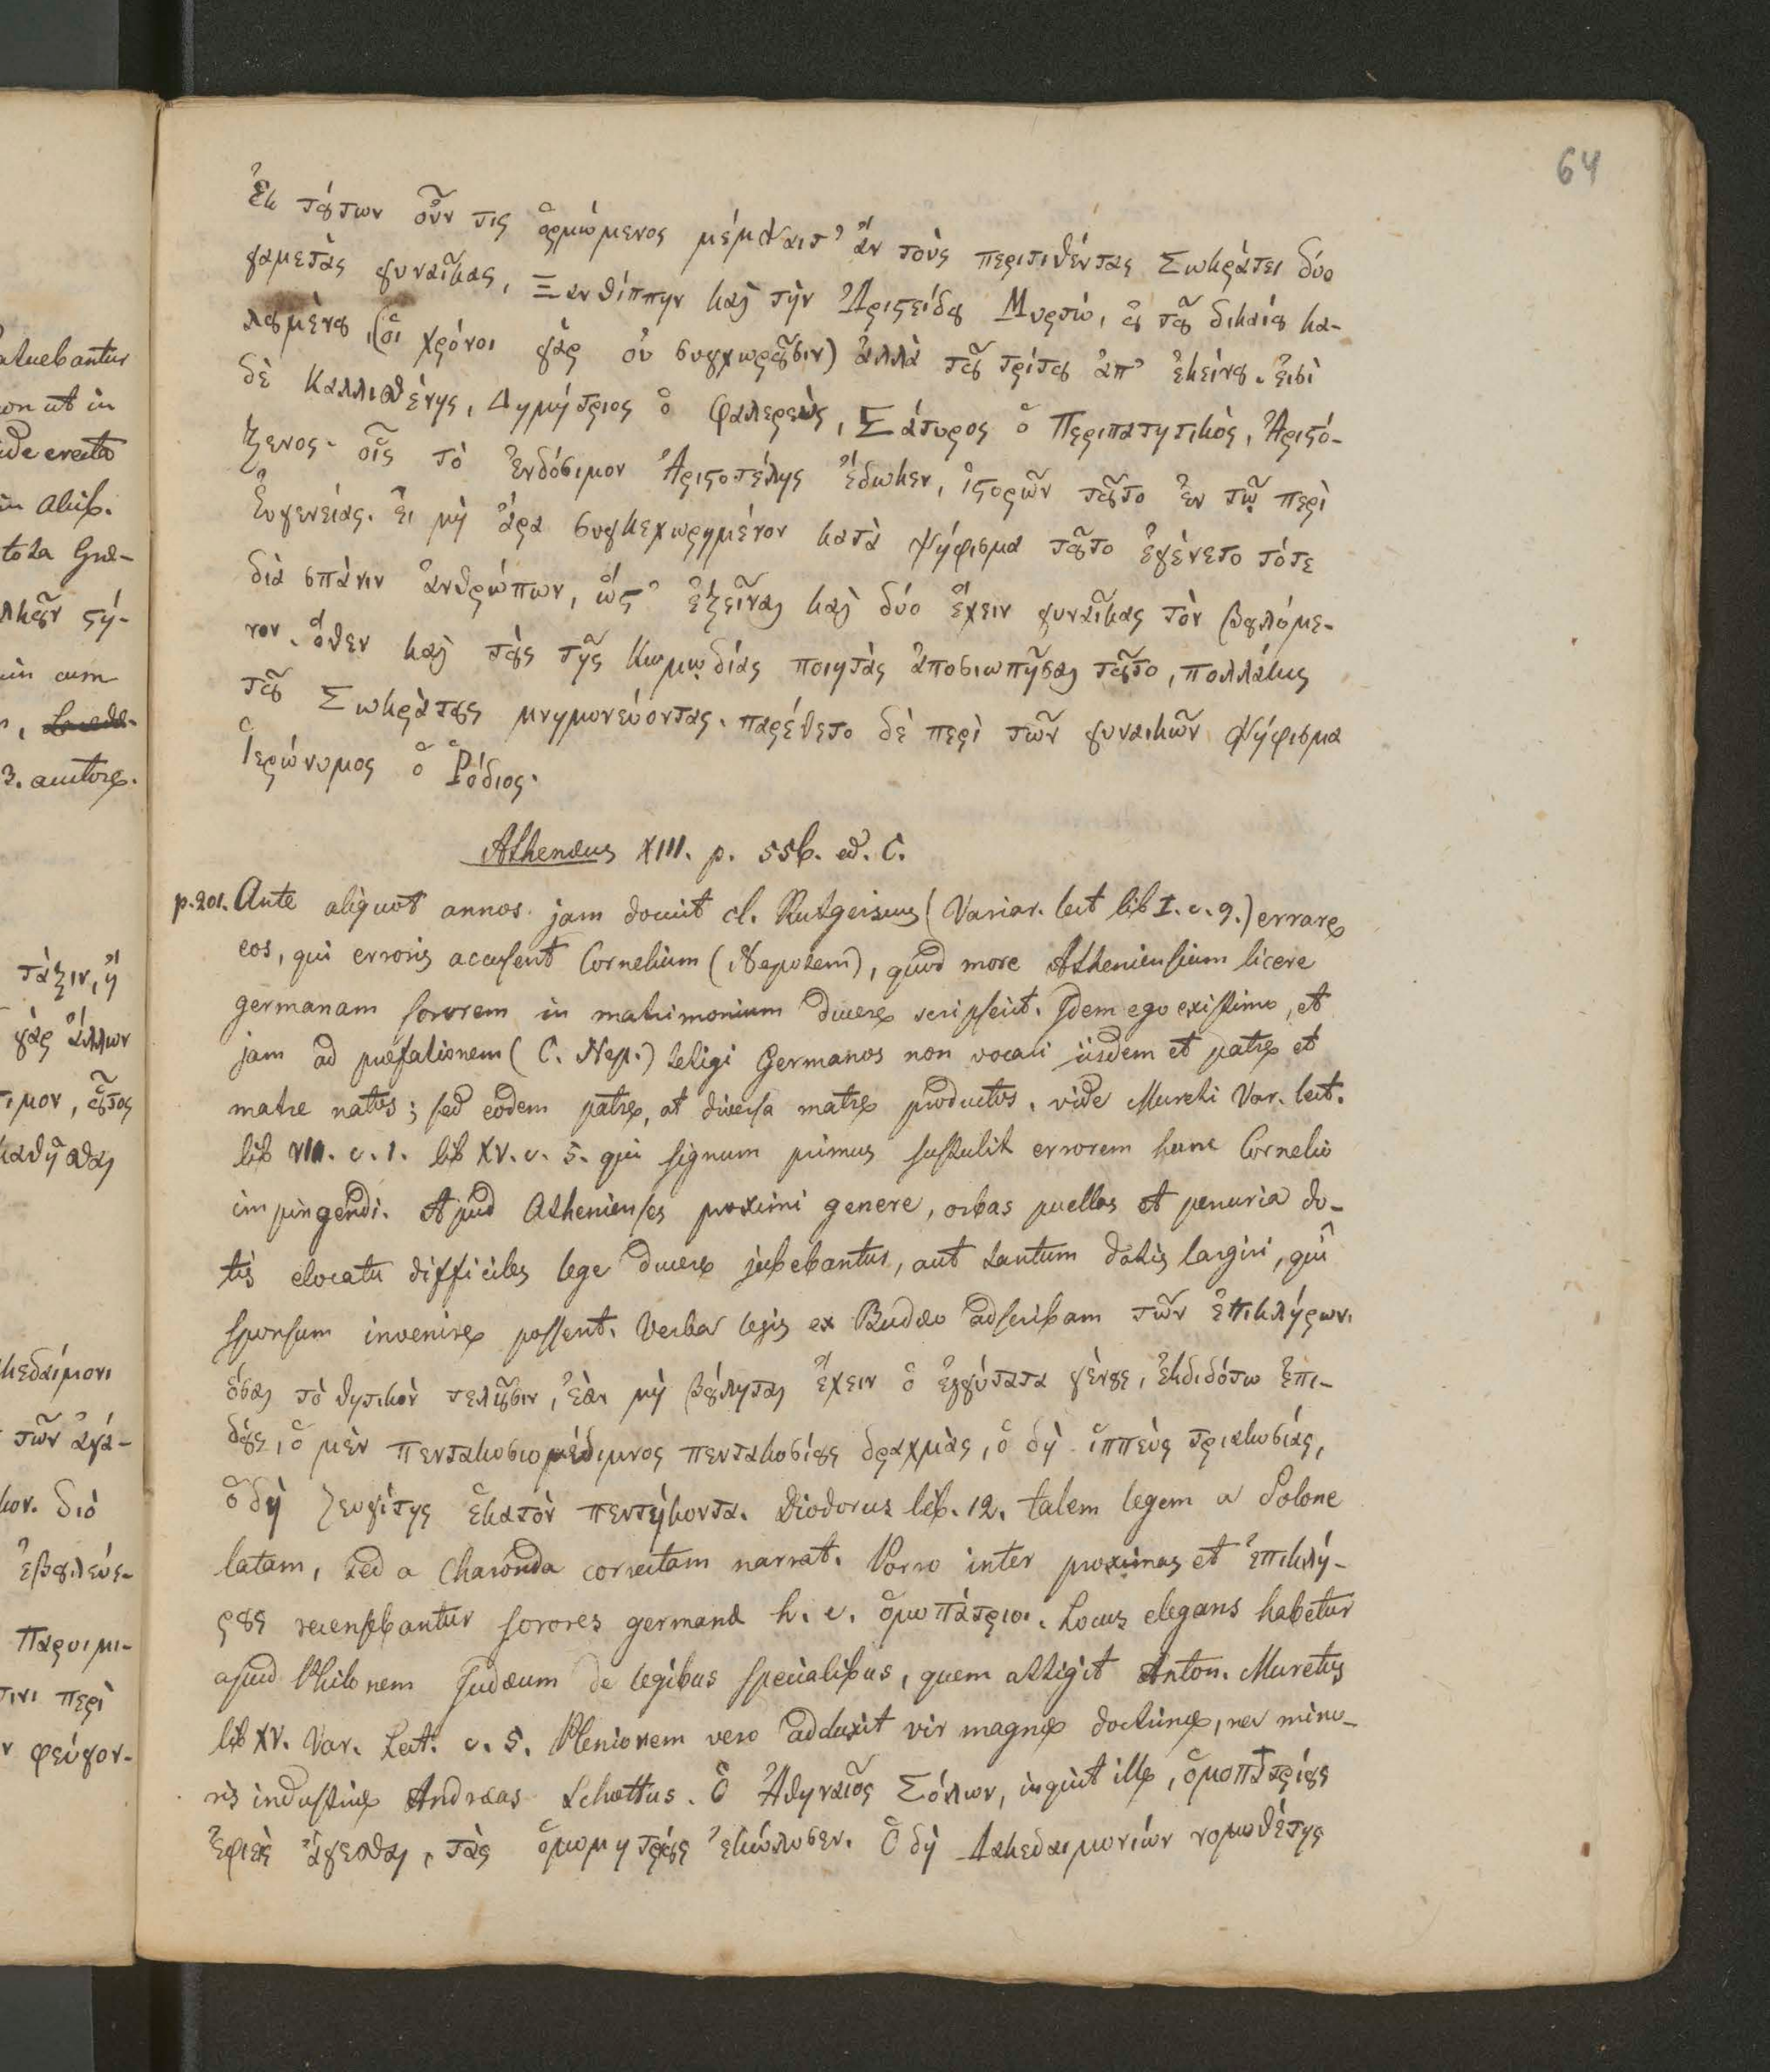 64
Ἐκ τούτων οὖν τις ὁρμώμενος μέμψαιτ᾽ ἂν τοὺς περιτιθέντας Σωκράτει δύο
γαμετὰς γυναῖκας, Ξανθίππην καὶ τὴν Ἀριστείδου Μυρτώ, οὐ τοῦ δικαίου κα-
λουμένου, (οἱ χρόνοι γὰρ οὐ συγχωροῦσιν) ἀλλὰ τοῦ τρίτου ἀπ᾽ ἐκείνου. Ἐισὶ
δὲ Καλλισθένης, Δημήτριος ὁ Φαλερεὺς, Σάτυρος ὁ Περιπατητικὸς, Ἀριστό-
ξενος· οἷς τὸ ἐνδόσιμον Ἀριστοτέλης ἔδωκεν, ἱστορῶν τοῦτο ἐν τῷ περὶ
Ἐυγενείας. ἐι μὴ ἄρα συγκεχωρημένον κατὰ ψήφισμα τοῦτο ἐγένετο τότε
διὰ σπάνιν ἀνθρώπων, ὥστ᾽ ἐξεῖναι καὶ δύο ἔχειν γυναῖκας τὸν βουλόμε-
νον. ὅθεν καὶ τοὺς τῆς κωμῳδίας ποιητὰς ἀποσιωπῆσαι τοῦτο, πολλάκις
τοῦ Σωκράτους μνημονεύοντας. παρέθετο δὲ περὶ τῶν γυναικῶν ψήφισμα
Ἱερώνυμος ὁ Ῥόδιος.
Athenæus XIII. p. 556. ed. C.
p. 201. Ante aliquot annos jam docuit cl. Rutgersius (Variar. lect lib I. c. 9.) errare
eos, qui erroris accusent Cornelium (Nepotem), quod more Atheniensium licere
germanam sororem in matrimonium ducere scripserit. Idem ego existimo, et
jam ad præfationem (C. Nep.) tetigi Germanos non vocari iisdem et patre et
matre natos; sed eodem patre, at diversa matre productos. vide Mureti Var. lect.
lib VII. c. 1. lib XV. c. 5. qui signum primus sustulit errorem hunc Cornelio
impingendi. Apud Athenienses proximi genere, orbas puellas et penuria do-
tis elocatu difficiles lege ducere jubebantur, aut tantum dotis largiri, quî
sponsum invenire possent. Verba legis ex Budæo adscribam τῶν ἐπικλήρων.
ὅσαι τὸ θητικὸν τελοῦσιν, ἐὰν μὴ βούληται ἔχειν ὁ ἐγγύτατα γένους, ἐκδιδότω ἐπι-
δοὺς, ὁ μὲν πεντακοσιομέδιμνος πεντακοσίους δραχμὰς, ὁ δὴ ἱππεὺς τριακοσίας,
ὁ δὴ ζευγίτης ἑκατὸν πεντήκοντα. Diodorus lib. 12. talem legem a Solone
latam, sed a Charonda correctam narrat. Porro inter proximas et ἐπικλή-
ρους recensebantur sorores germanæ h. e. ὁμοπάτριοι. Locus elegans habetur
apud Philonem Judæum de legibus specialibus, quem attigit Anton. Muretus
lib XV. Var. Lect. c. 5. Pleniorem vero adduxit vir magnæ doctrinæ, nec mino-
ris industriæ Andræas Schottus. Ὁ Ἀθηναῖος Σόλων, inquit ille, ὁμοπατρίους
ἐφιεὶς ἄγεσθαι, τὰς ὁμομητρίους ἐκώλυσεν. Ὁ δὴ Λακεδαιμονιών νομοθέτης